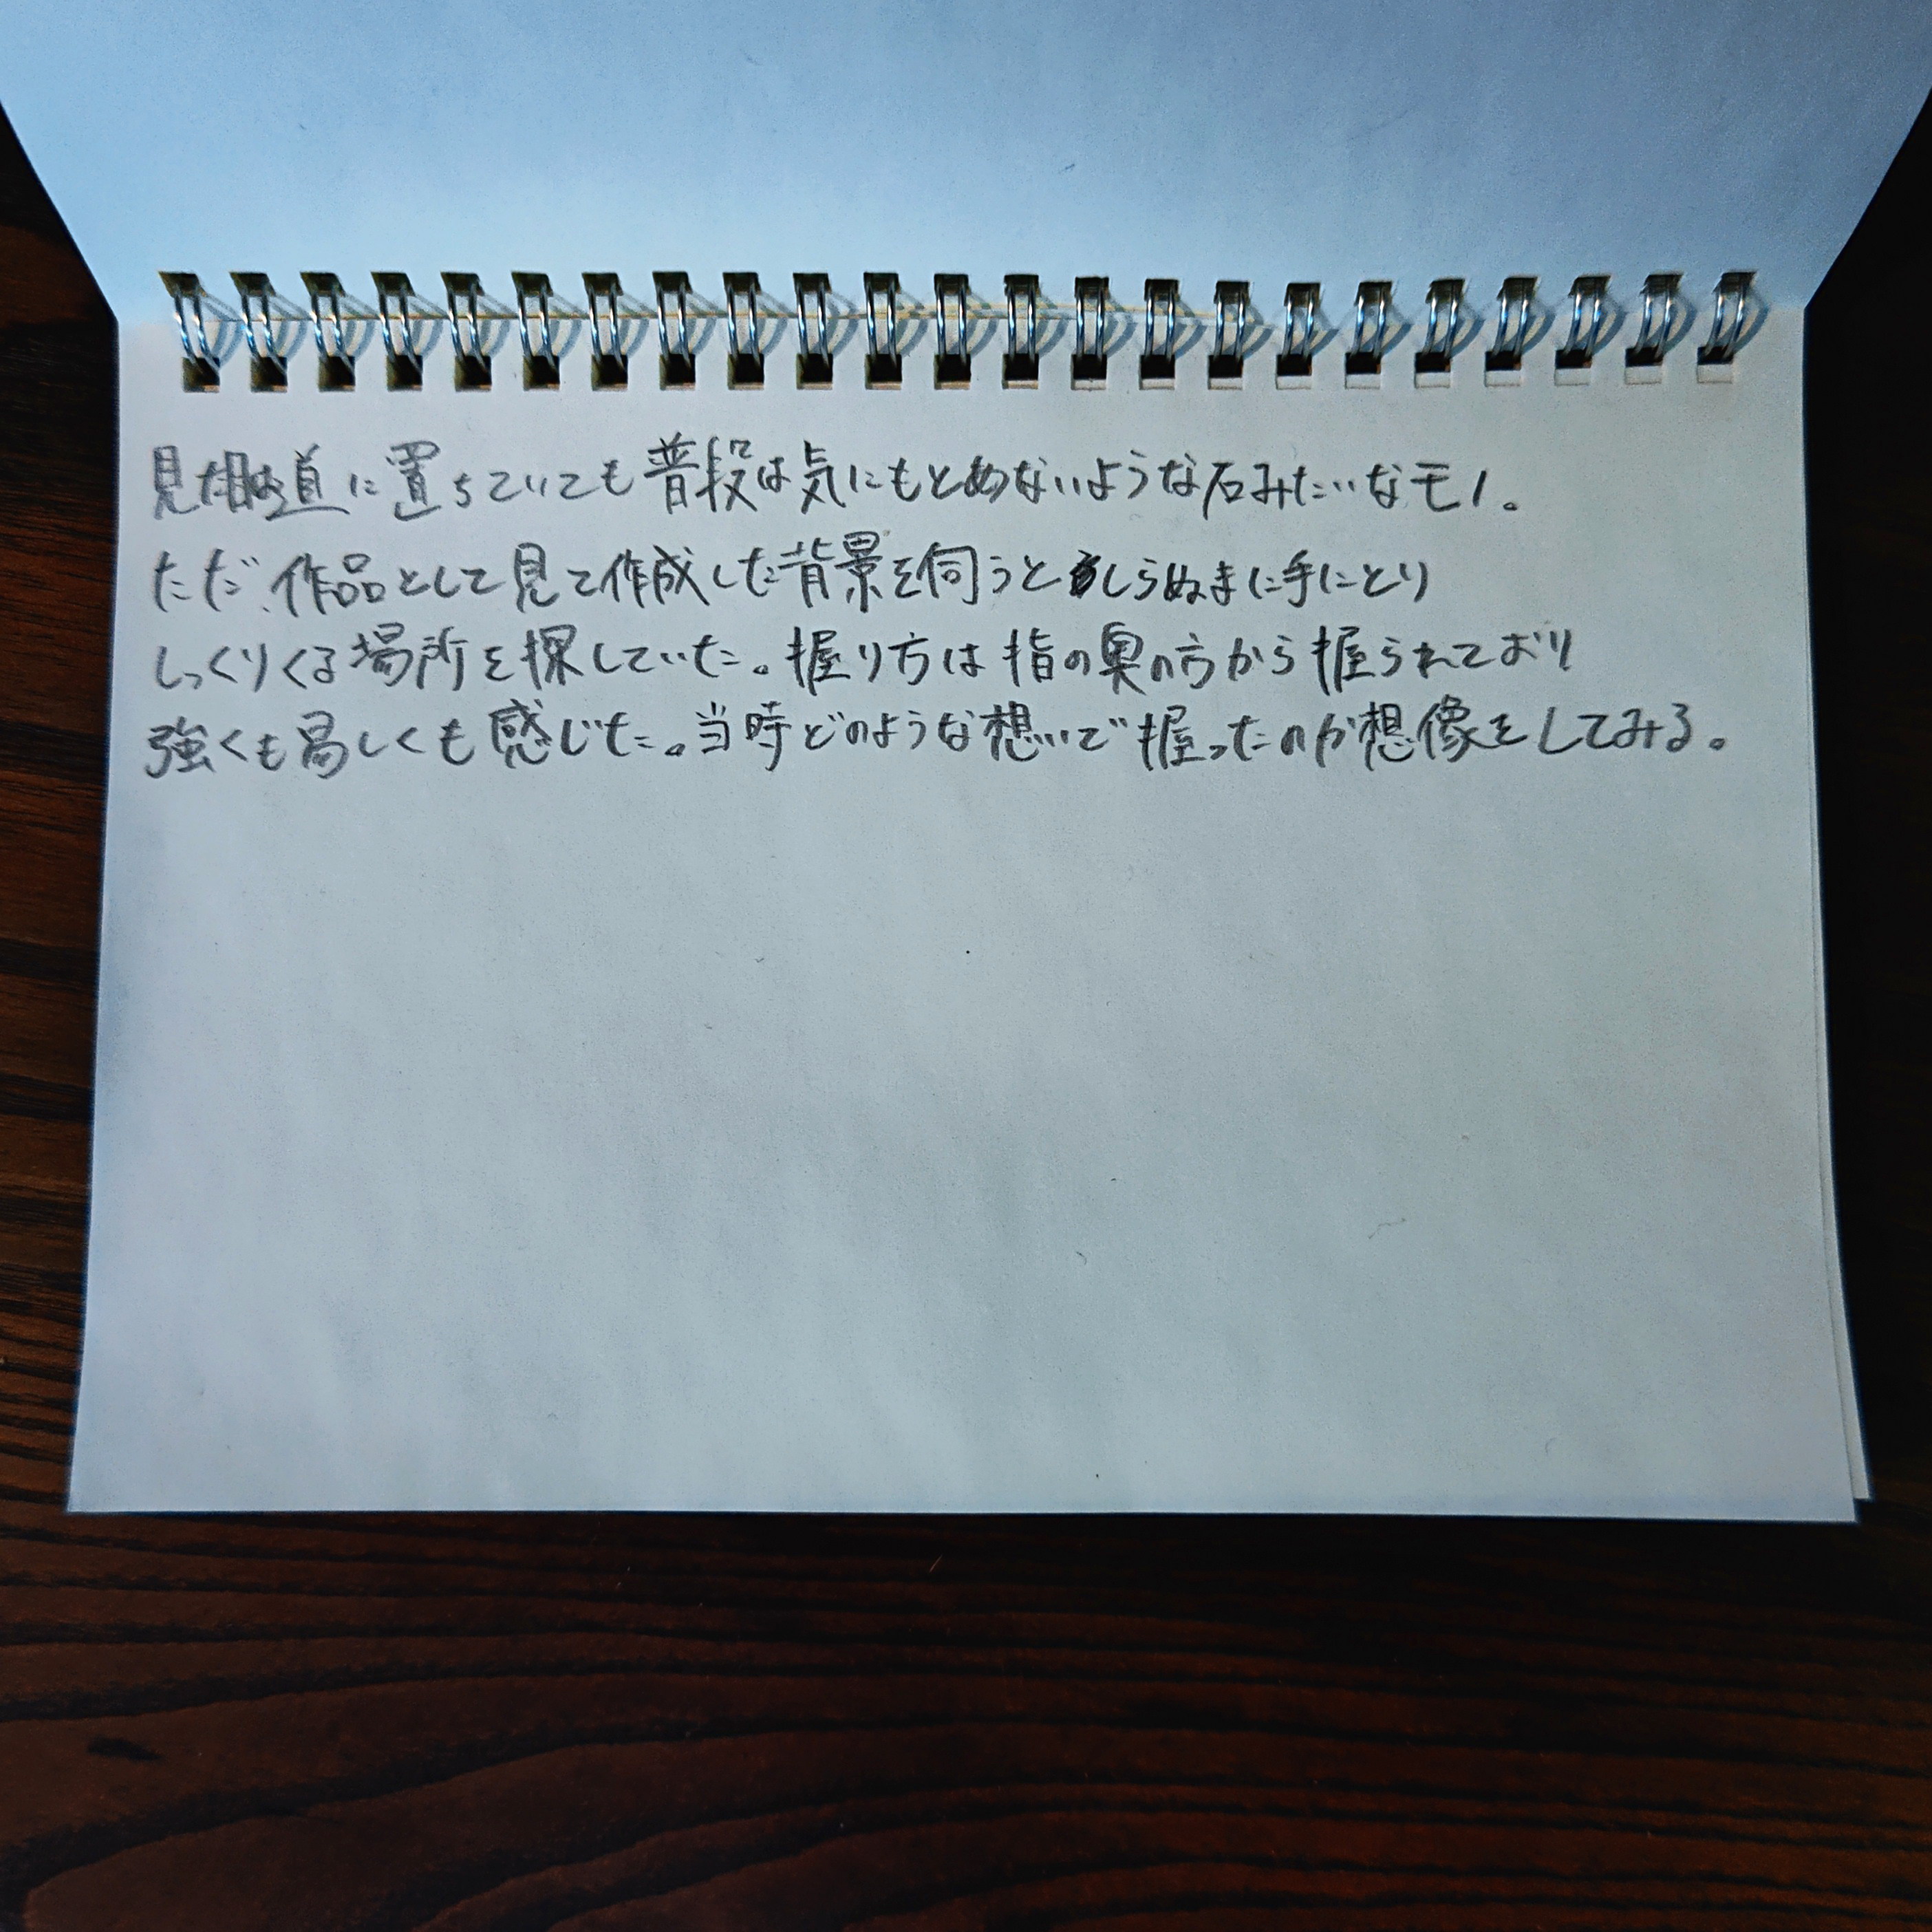 見た目は道に置ちていても普段は気にもとめないような石みたいなモノ。
ただ、作品として見て作成した背景を伺うとしらぬまに手にとり
しっくりくる場所を探していた。握り方は指の奥の方から握られており
強くも易しくも感じた。当時どのような想いで握ったのか想像をしてみる。